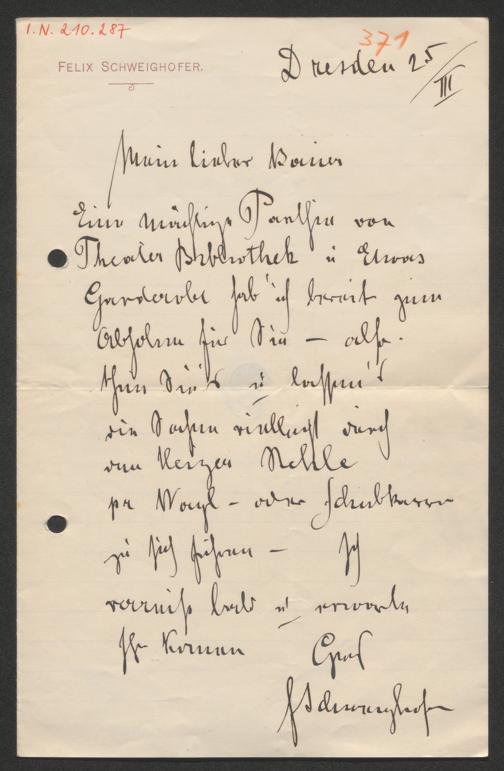 I.N. 210.287
371
FELIX SCHWEIGHOFER.
Dresden 25/III
Mein lieber
Eine mächtige Parthie von
Theater Bibliothek u Etwas
Garderobe hab' ich bereit zum
Abholen für Sie – also
thun Sie's u lassen's
die Sachen vielleicht durch
den
pr Wagl – oder Schubkarren
zu sich führen – Ich
verreise bald u erwarte
Ihr Komen Gruß
FSchweighofer